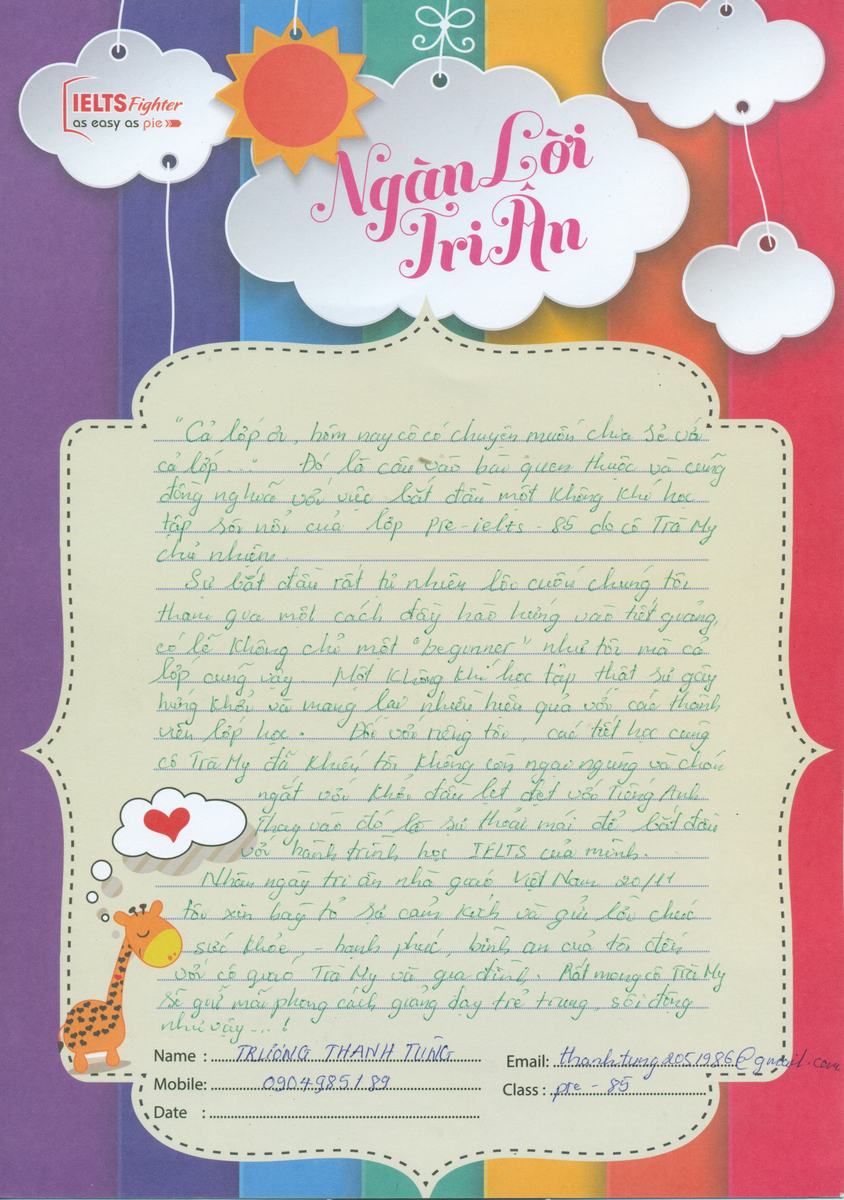 IELTS Fighter
as easy as pie
Ngàn Lời
Tri Ân
"Cả lớp ơi, hôm nay cô có chuyện muốn chia sẻ với
cả lớp...." Đó là câu vào bài quen thuộc và cũng
đồng nghĩa với việc bắt đầu một không khí học
tập sôi nổi của lớp pre-ielts - 85 do cô Trà My
chủ nhiệm.
Sự bắt đầu rất tự nhiên lôi cuốn chúng tôi
tham gia một cách đầy hào hứng vào tiết giảng,
có lẽ không chỉ một "beginner" như tôi mà cả
lớp cũng vậy. Một không khí học tập thật sự gây
hứng khởi và mang lại nhiều hiệu quả với các thành
viên lớp học. Đối với riêng tôi, các tiết học cùng
cô Trà My đã khiến tôi không còn ngại ngùng và chán
ngắt với khởi đầu lẹt đẹt với Tiếng Anh
Thay vào đó là sự thoải mái để bắt đầu
với hành trình học IELTS của mình.
Nhân ngày tri ân nhà giáo Việt Nam 20/11
tôi xin bày tỏ sự cảm kích và gửi lời chúc
sức khỏe, - hạnh phúc, bình an của tôi đến
với cô giáo Trà My và gia đình. Rất mong cô Trà My
sẽ giữ mãi phong cách giảng dạy trẻ trung, sôi động
như vậy...!
Name : TRƯƠNG THANH TÙNG Email: thanhtung2051986@gmail.com
Mobile: 0904985189 Class : pre - 85
Date :